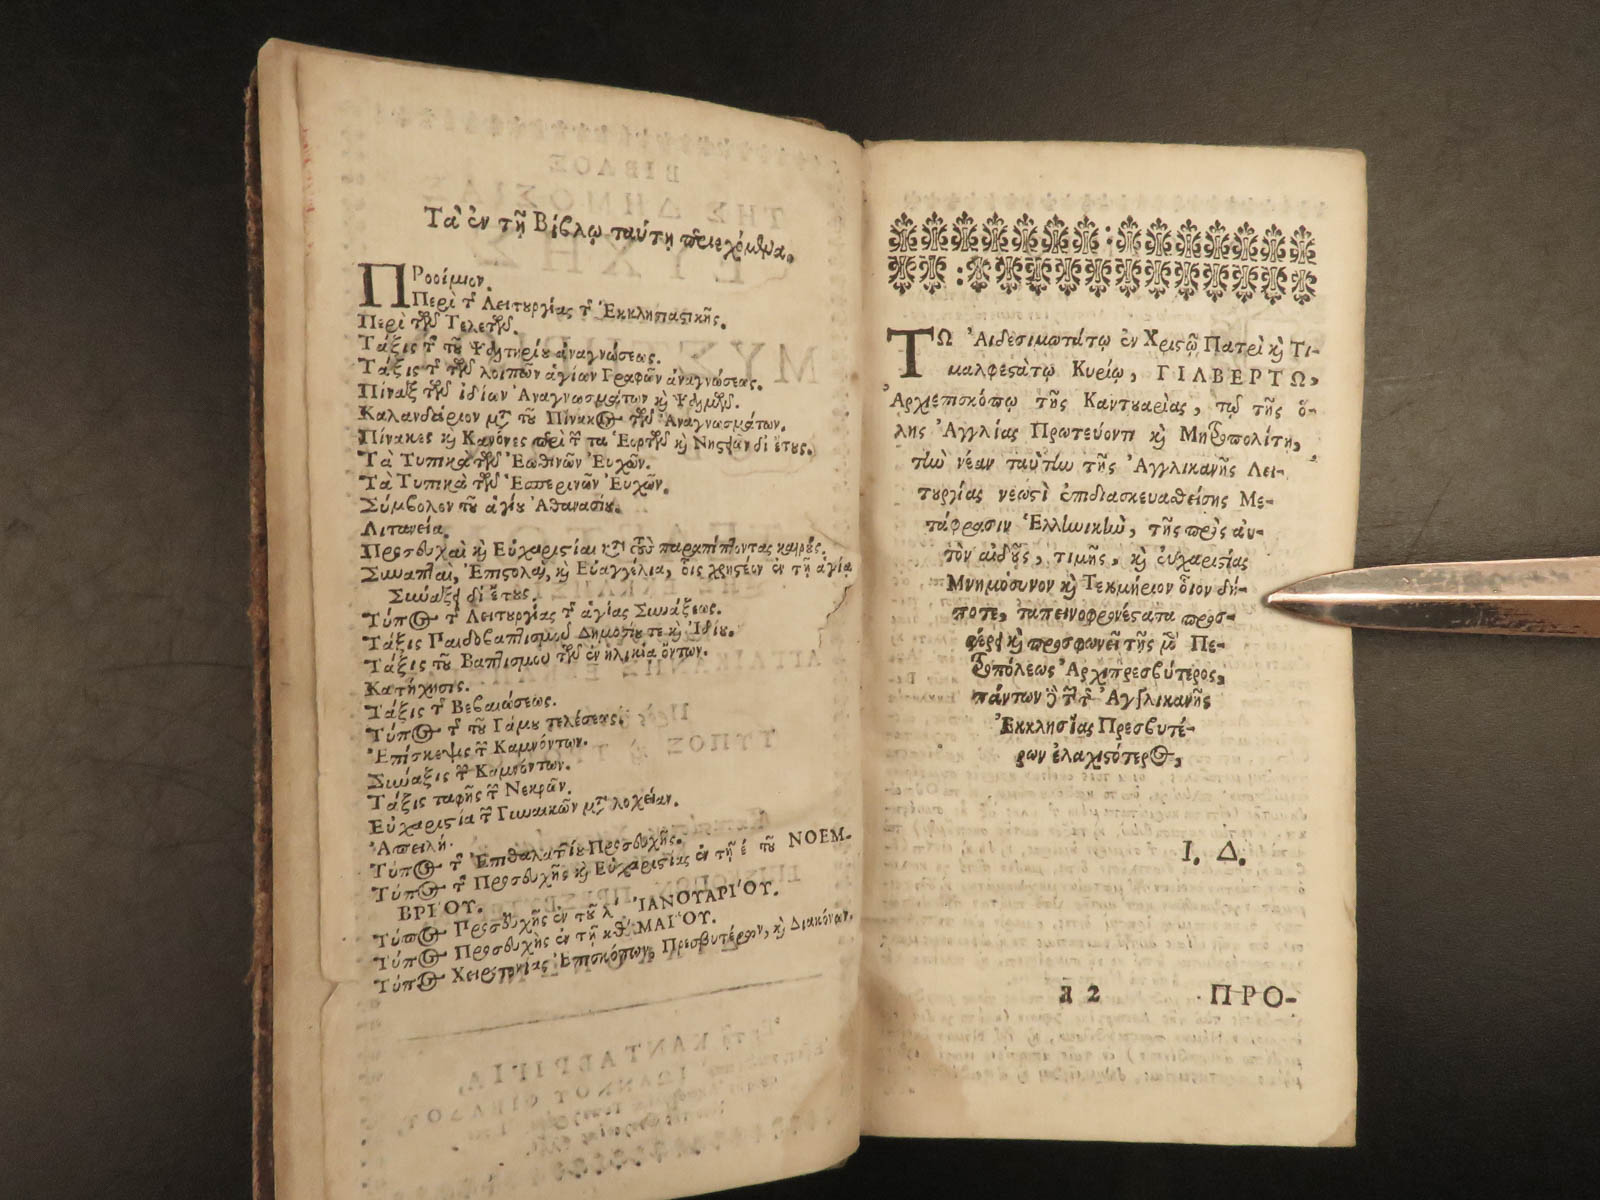 Τὰ ἐν τῇ Βίβλῳ ταύτῃ περιεχόμενα.
ΠΡοοίμιον.
Περὶ τ͂ Λειτȣργίας τ͂ Ἐκκλησιαστικῆς.
Περὶ τῶν Τελετῶν.
Τάξις τ͂ τοῦ Ψαλτηρίȣ ἀναγνώσεως.
Τάξις τ͂ τῶν λοιπῶν ἁγίων Γραφῶν ἀναγνώσεως.
Πίναξ τῶν ἰδίων Ἀναγνωσμάτων ϗ Ψαλμῶν.
Καλανδάριον μτ̀ τοῦ Πίνακος τῶν Ἀναγνωσμάτων.
Πίνακες ϗ Κανόνες περὶ τ͂ τα Ἑορτῶν ϗ Νηστειῶν δι' ἔτȣς.
Τὰ Τυπικὰ τῶν Ἑωθινῶν Εὐχῶν.
Τὰ Τυπικὰ τῶν Ἑσπερινῶν Εὐχῶν.
Σύμβολον τοῦ ἁγίȣ Ἀθανασίȣ.
Λιτανεία.
Προσευχαὶ ϗ Εὐχαριστίαι κτ̀ τοὺς παραπίπτοντας καιρȣ́ς.
Συναπταὶ, Ἐπιστολαὶ, ϗ Εὐαγγέλια, οἷς χρηστέον ἐν τῇ ἁγίᾳ
Συνάξει δι' ἔτȣς.
Τύπος τ͂ Λειτȣργίας τ͂ ἁγίας Συνάξεως.
Τάξις Παιδοβαπτισμοῦ Δημοσίȣ τε ϗ Ἰδίȣ.
Τάξις τοῦ Βαπτισμοῦ τῶν ἐν ἡλικίᾳ ὄντων.
Κατήχησις.
Τάξις τ͂ Βεβαιώσεως.
Τύπος τ͂ τοῦ Γάμȣ τελέσεως.
Ἐπίσκεψις τ͂ Καμνόντων.
Σύναξις τ͂ Καμνόντων.
Τάξις ταφῆς τ͂ Νεκρῶν.
Εὐχαριστία τ͂ Γυναικῶν μτ̀ λοχείαν.
Ἀπειλή.
Τύπος τ͂ Ἐπιθαλαττίȣ Προσευχῆς.
Τύπος τ͂ Προσευχῆς ϗ Εὐχαριστίας ἐν τῇ έ τοῦ ΝΟΕΜ-
ΒΡΙ'ΟΥ.
Τύπος Προσευχῆς ἐν τῇ λ' ἸΑΝΟΥΑΡΙ'ΟΥ.
Τύπος Προσευχῆς ἐν τῇ κθ' ΜΑΙ'ΟΥ.
Τύπος Χειροτονίας Ἐπισκόπων, Πρεσβυτέρων, ϗ Διακόνων.
ΤΩ Αἰδεσιμωτάτῳ ἐν Χριστῷ Πατρὶ ϗ Τι-
μαλφεστάτῳ Κυρίῳ, ΓΙΛΒΕΡΤΩ,
Ἀρχιεπισκόπῳ τῆς Καντȣαρίας, τῷ τῆς ὅ-
λης Ἀγγλίας Πρωτεύοντι ϗ Μητροπολίτῃ,
τὴν νέαν ταύτην τῆς Ἀγγλικανῆς Λει-
τȣργίας νεωστὶ ἐπιδιασκευασθείσης Με-
τάφρασιν Ἑλληνικὴν, τῆς πρὸς αὐ-
τὸν αἰδοῦς, τιμῆς, ϗ εὐχαριστίας
Μνημόσυνον ϗ Τεκμήριον ὁῖον δή-
ποτε, ταπεινοφρονέστατα προσ-
φέρει ϗ προσφωνεῖ τῆς μ̀ Πε-
τροπόλεως Ἀρχιπρεσβύτερος,
πάντων ἢ τ͂ τ͂ Ἀγγλικανῆς
Ἐκκλησίας Πρεσβυτέ-
ρων ἐλαχιστότερος,
Ι. Δ.
a 2
ΠΡΟ-